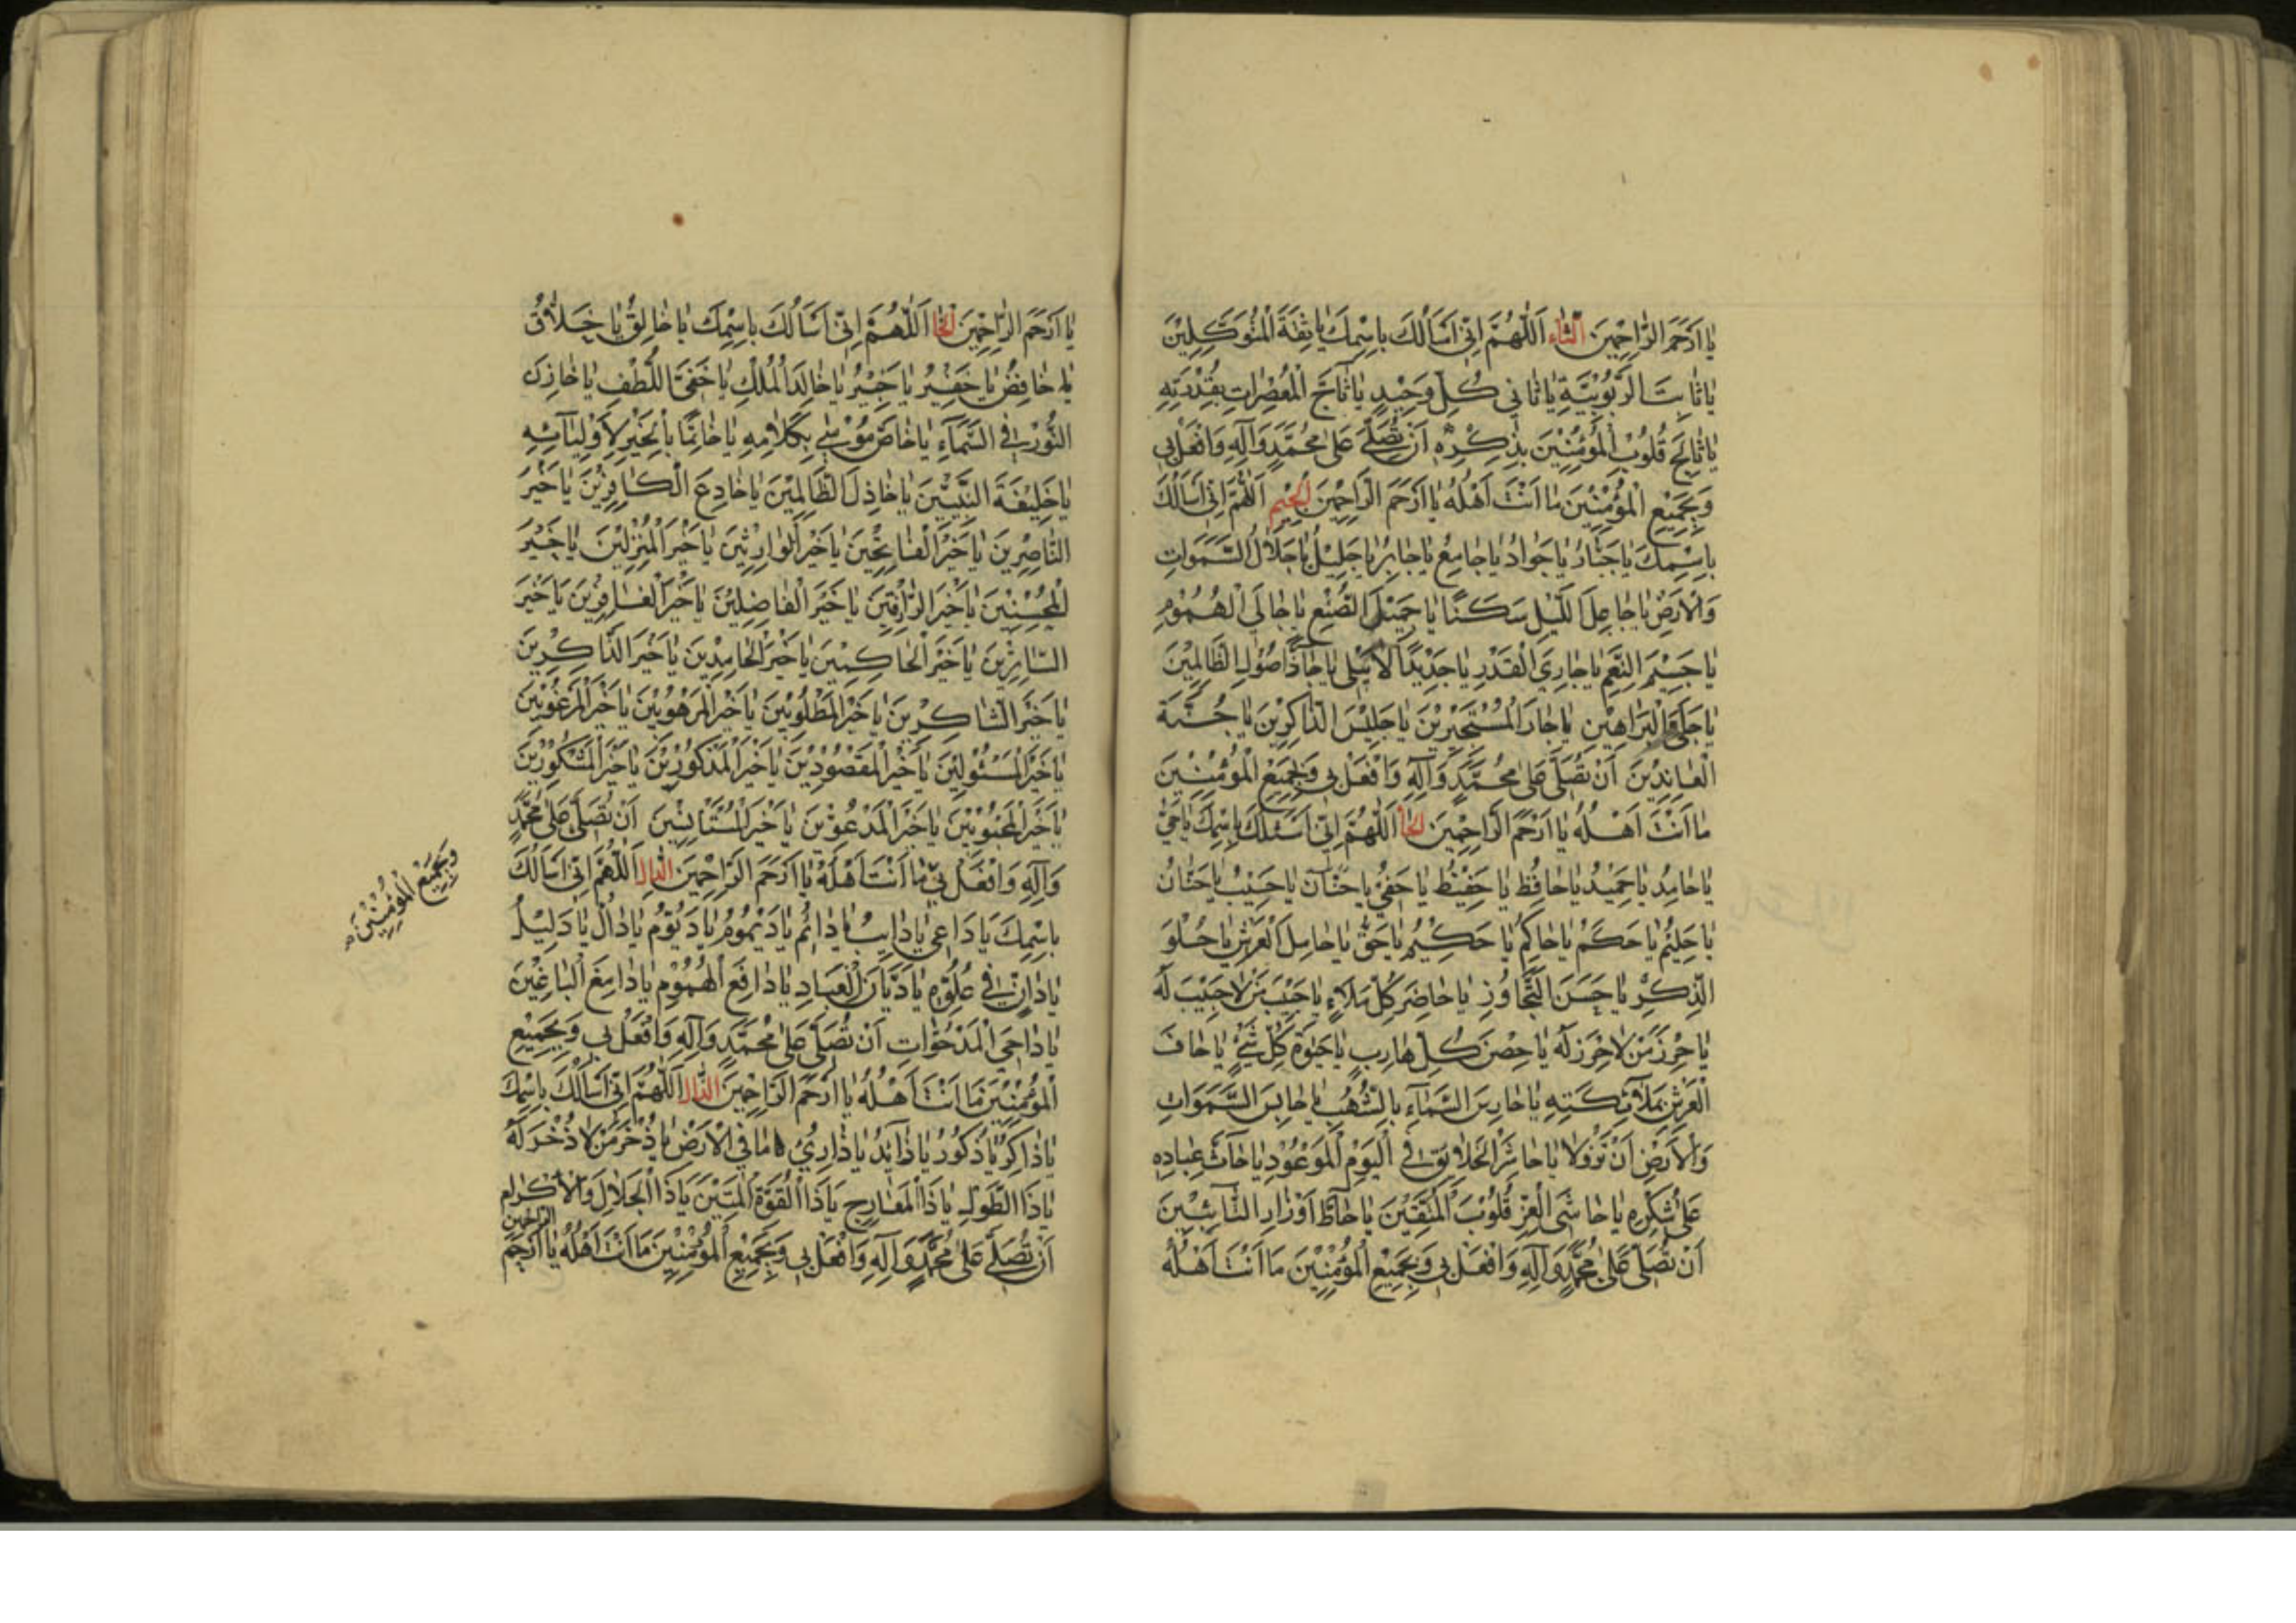 يا اَرْحَمَ الرّاحِمينَ الثاء اَللّهُمَّ اِنّى اَسْاَلُكَ بِاسْمِكَ يا ثِقَةَ الْمُتَوَكِّلينَ
يا ثابِتَ الرُّبُوبِيَّةِ يا ثانى كُلِّ وَحيدٍ يا ثاجَّ الْمُعْصِراتِ بِقُدْرَتِهِ
يا ثالِجَ قُلُوبِ الْمُؤْمِنينَ بِذِكْرِهِ اَنْ تُصَلِّىَ عَلى مُحَمَّدٍ وَآلِهِ وَافْعَلْ بى
وَبِجَميعِ الْمُؤْمِنينَ ما اَنْتَ اَهْلُهُ يا اَرْحَمَ الرّاحِمينَ الجيم اَللّهُمَّ اِنّى اَسْاَلُكَ
بِاسْمِكَ يا جَبّارُ يا جَوادُ يا جامِعُ يا جابِرُ يا جَليلُ يا جَلالَ السَّمَواتِ
وَالْاَرْضِ يا جاعِلَ اللَّيْلِ سَكَنًا يا جَميلَ الصُّنْعِ يا جالِىَ الْهُمُومِ
يا جَسيمَ النِّعَمِ يا جارِىَ الْقَدَرِ يا جَديدًا لا يَبْلى يا جاذًّا صُولِ الظّالِمينَ
يا جَلِىَّ الْبَراهينِ يا جارَ الْمُسْتَجيرينَ يا جَليسَ الذّاكِرينَ يا جُنَّةَ
الْعائِذينَ اَنْ تُصَلِّىَ عَلى مُحَمَّدٍ وَآلِهِ وَافْعَلْ بى وَبِجَميعِ الْمُؤْمِنينَ
ما اَنْتَ اَهْلُهُ يا اَرْحَمَ الرّاحِمينَ الحا اَللّهُمَّ اِنّى اَسْئَلُكَ بِاسْمِكَ يا حَىُّ
يا حامِدُ يا حَميدُ يا حافِظُ يا حَفيظُ يا حَفِىُّ يا حَسيبُ يا حَنّانُ
يا حَليمُ يا حَكَمُ يا حاكِمُ يا حَكيمُ يا حَقُّ يا حامِلَ الْعَرْشِ يا حُلْوَ
الذِّكْرِ يا حَسَنَ التَّجاوُزِ يا حاضِرَ كُلِّ مَلَاءٍ يا حَبيبَ مَنْ لا حَبيبَ لَهُ
يا حِرْزَ مَنْ لا حِرْزَ لَهُ يا حِصْنَ كُلِّ هارِبٍ يا حَيوةَ كُلِّ شَىْءٍ يا حافَّ
الْعَرْشِ بِمَلائِكَتِهِ يا حارِسَ السَّمآءِ بِالشُّهُبِ يا حابِسَ السَّمَواتِ
وَالْاَرْضِ اَنْ تَزُولا يا حاشِرَ الْخَلايِقِ فِى الْيَوْمِ الْمَوْعُودِ يا حآثَّ عِبادِهِ
عَلى شُكْرِهِ يا حاشِىَ الْعِزِّ قُلُوبَ الْمُتَّقينَ يا حآطَّ اَوْزارِ التّائِبينَ
اَنْ تُصَلِّىَ عَلى مُحَمَّدٍ وَآلِهِ وَافْعَلْ بى وَبِجَميعِ الْمُؤْمِنينَ ما اَنْتَ اَهْلُهُ
يا اَرْحَمَ الرّاحِمينَ الخا اَللّهُمَّ اِنّى اَسْاَلُكَ بِاسْمِكَ يا خالِقُ يا خَلّاقُ
يا خافِضُ يا خَفيرُ يا خَبيرُ يا خالِدَ الْمُلْكِ يا خَفِىَّ اللُّطْفِ يا خازِنَ
النُّورِ فِى السَّمآءِ يا خاصَّ مُوسى بِكَلامِهِ يا خاتِمًا بِالْخَيْرِ لِاَوْلِيآئِهِ
يا خَليفَةَ النَّبِيّينَ يا خاذِلَ الظّالِمينَ يا خادِعَ الْكافِرينَ يا خَيْرَ
النّاصِرينَ يا خَيْرَ الْفاتِحينَ يا خَيْرَ الْوارِثينَ يا خَيْرَ الْمُنْزِلينَ يا خَيْرَ
الْمُحْسِنينَ يا خَيْرَ الرّازِقينَ يا خَيْرَ الْفاصِلينَ يا خَيْرَ الْغافِرينَ يا خَيْرَ
السّاتِرينَ يا خَيْرَ الْحاكِمينَ يا خَيْرَ الْحامِدينَ يا خَيْرَ الذّاكِرينَ
يا خَيْرَ الشّاكِرينَ يا خَيْرَ الْمَطْلُوبينَ يا خَيْرَ الْمَرْهُوبينَ يا خَيْرَ الْمَرْغُوبينَ
يا خَيْرَ الْمَسْئُولينَ يا خَيْرَ الْمَقْصُودينَ يا خَيْرَ الْمَذْكُورينَ يا خَيْرَ الْمَشْكُورينَ
يا خَيْرَ الْمَحْبُوبينَ يا خَيْرَ الْمَدْعُوّينَ يا خَيْرَ الْمُسْتَأْنِسينَ اَنْ تُصَلِّىَ عَلى مُحَمَّدٍ
وَآلِهِ وَافْعَلْ بى ما اَنْتَ اَهْلُهُ يا اَرْحَمَ الرّاحِمينَ الدال اَللّهُمَّ اِنّى اَسْاَلُكَ
وَبِجَميعِ الْمُؤْمِنينَ
بِاسْمِكَ يا داعى يا دايِبُ يا دائِمُ يا دَيْمُومُ يا دَيُّومُ يا دالُّ يا دَليلُ
يا دانٍ فى عُلُوِّهِ يا دَيّانَ الْعِبادِ يا دافِعَ الْهُمُومِ يا دامِغَ الْباغينَ
يا داحِىَ الْمَدْحُوّاتِ اَنْ تُصَلِّىَ عَلى مُحَمَّدٍ وَآلِهِ وَافْعَلْ بى وَبِجَميعِ
الْمُؤْمِنينَ ما اَنْتَ اَهْلُهُ يا اَرْحَمَ الرّاحِمينَ الذال اَللّهُمَّ اِنّى اَسْاَلُكَ بِاسْمِكَ
يا ذاكِرُ يا ذَكُورُ يا ذآئِدُ يا ذارِئُ ما فِى الْاَرْضِ يا ذُخْرَ مَنْ لا ذُخْرَ لَهُ
يا ذَا الطَّوْلِ يا ذَا الْمَعارِجِ يا ذَا الْقُوَّةِ الْمَتينَ يا ذَا الْجَلالِ وَالْاِكْرامِ
اَنْ تُصَلِّىَ عَلى مُحَمَّدٍ وَآلِهِ وَافْعَلْ بى وَبِجَميعِ الْمُؤْمِنينَ ما اَنْتَ اَهْلُهُ يا اَرْحَمَ الرّاحِمينَ